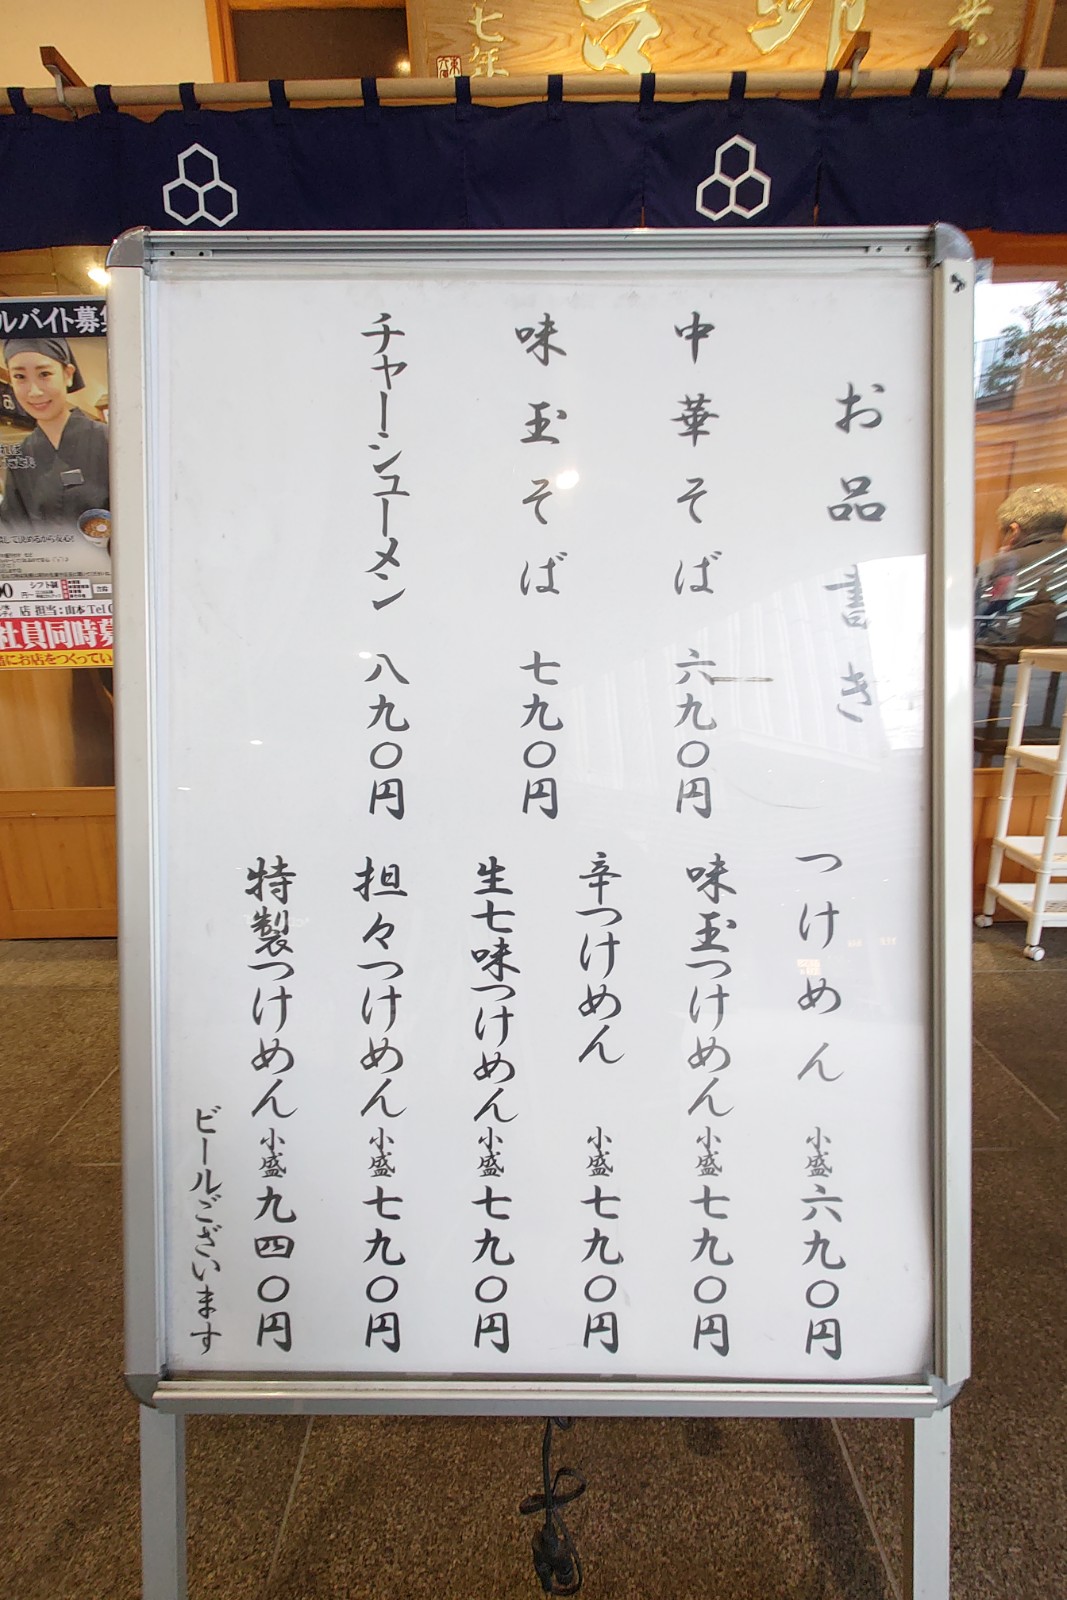 七年
お品書き
中華そば 六九〇円
味玉そば 七九〇円
チャーシューメン 八九〇円
つけめん 小盛 六九〇円
味玉つけめん 小盛 七九〇円
辛つけめん 小盛 七九〇円
生七味つけめん 小盛 七九〇円
担々つけめん 小盛 七九〇円
特製つけめん 小盛 九四〇円
ビールございます
ルバイト募集
シフト制
店 担当:山本 Tel
社員同時募
緒にお店をつくってい